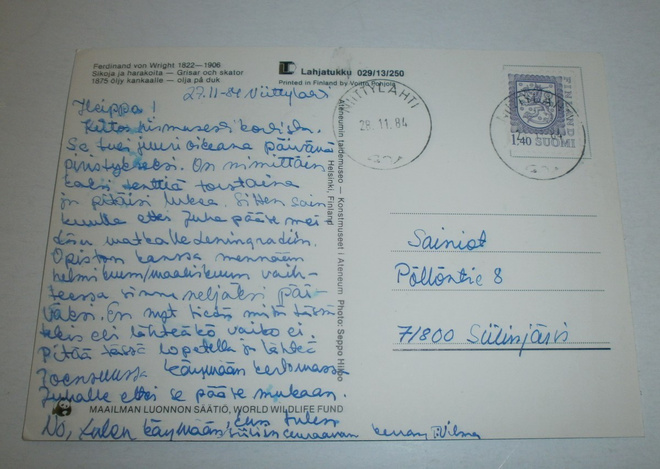 Ferdinand von Wright 1822—1906
Sikoja ja harakoita — Grisar och skator
1875 öljy kankaalle — olja på duk
Lahjatukku 029/13/250
Printed in Finland by Voitto Pohjola
27.11-84 Viittylahti
Heippa!
Kiitos kortista.
Se tuli juuri oikeana päivänä
piristykseksi. On nimittäin
kaksi tenttiä torstaina
ja pitäisi lukea. Sitten sain
kuulla että Juha pääsee mei-
dän matkalle Leningradiin.
Opiston kanssa mennään
helmikuun/maaliskuun vaih-
teessa sinne neljäksi päi-
väksi. En nyt tiedä mitä tässä
tekis eli lähteäkö vaiko ei.
Pitää tässä lopetella ja lähteä
Joensuussa käymään kertomassa
Juhalle että se pääsee mukaan.
No, käymään kun tulen
seuraavan kerran. Vilma
MAAILMAN LUONNON SÄÄTIÖ, WORLD WILDLIFE FUND
Ateneumin taidemuseo — Konstmuseet i Ateneum Photo: Seppo Hilpo
Helsinki, Finland
NIITTYLAHTI
28.11.84
1,40 SUOMI
FINLAND
Sainiot
Pöllöntie 8
71800 Siilinjärvi